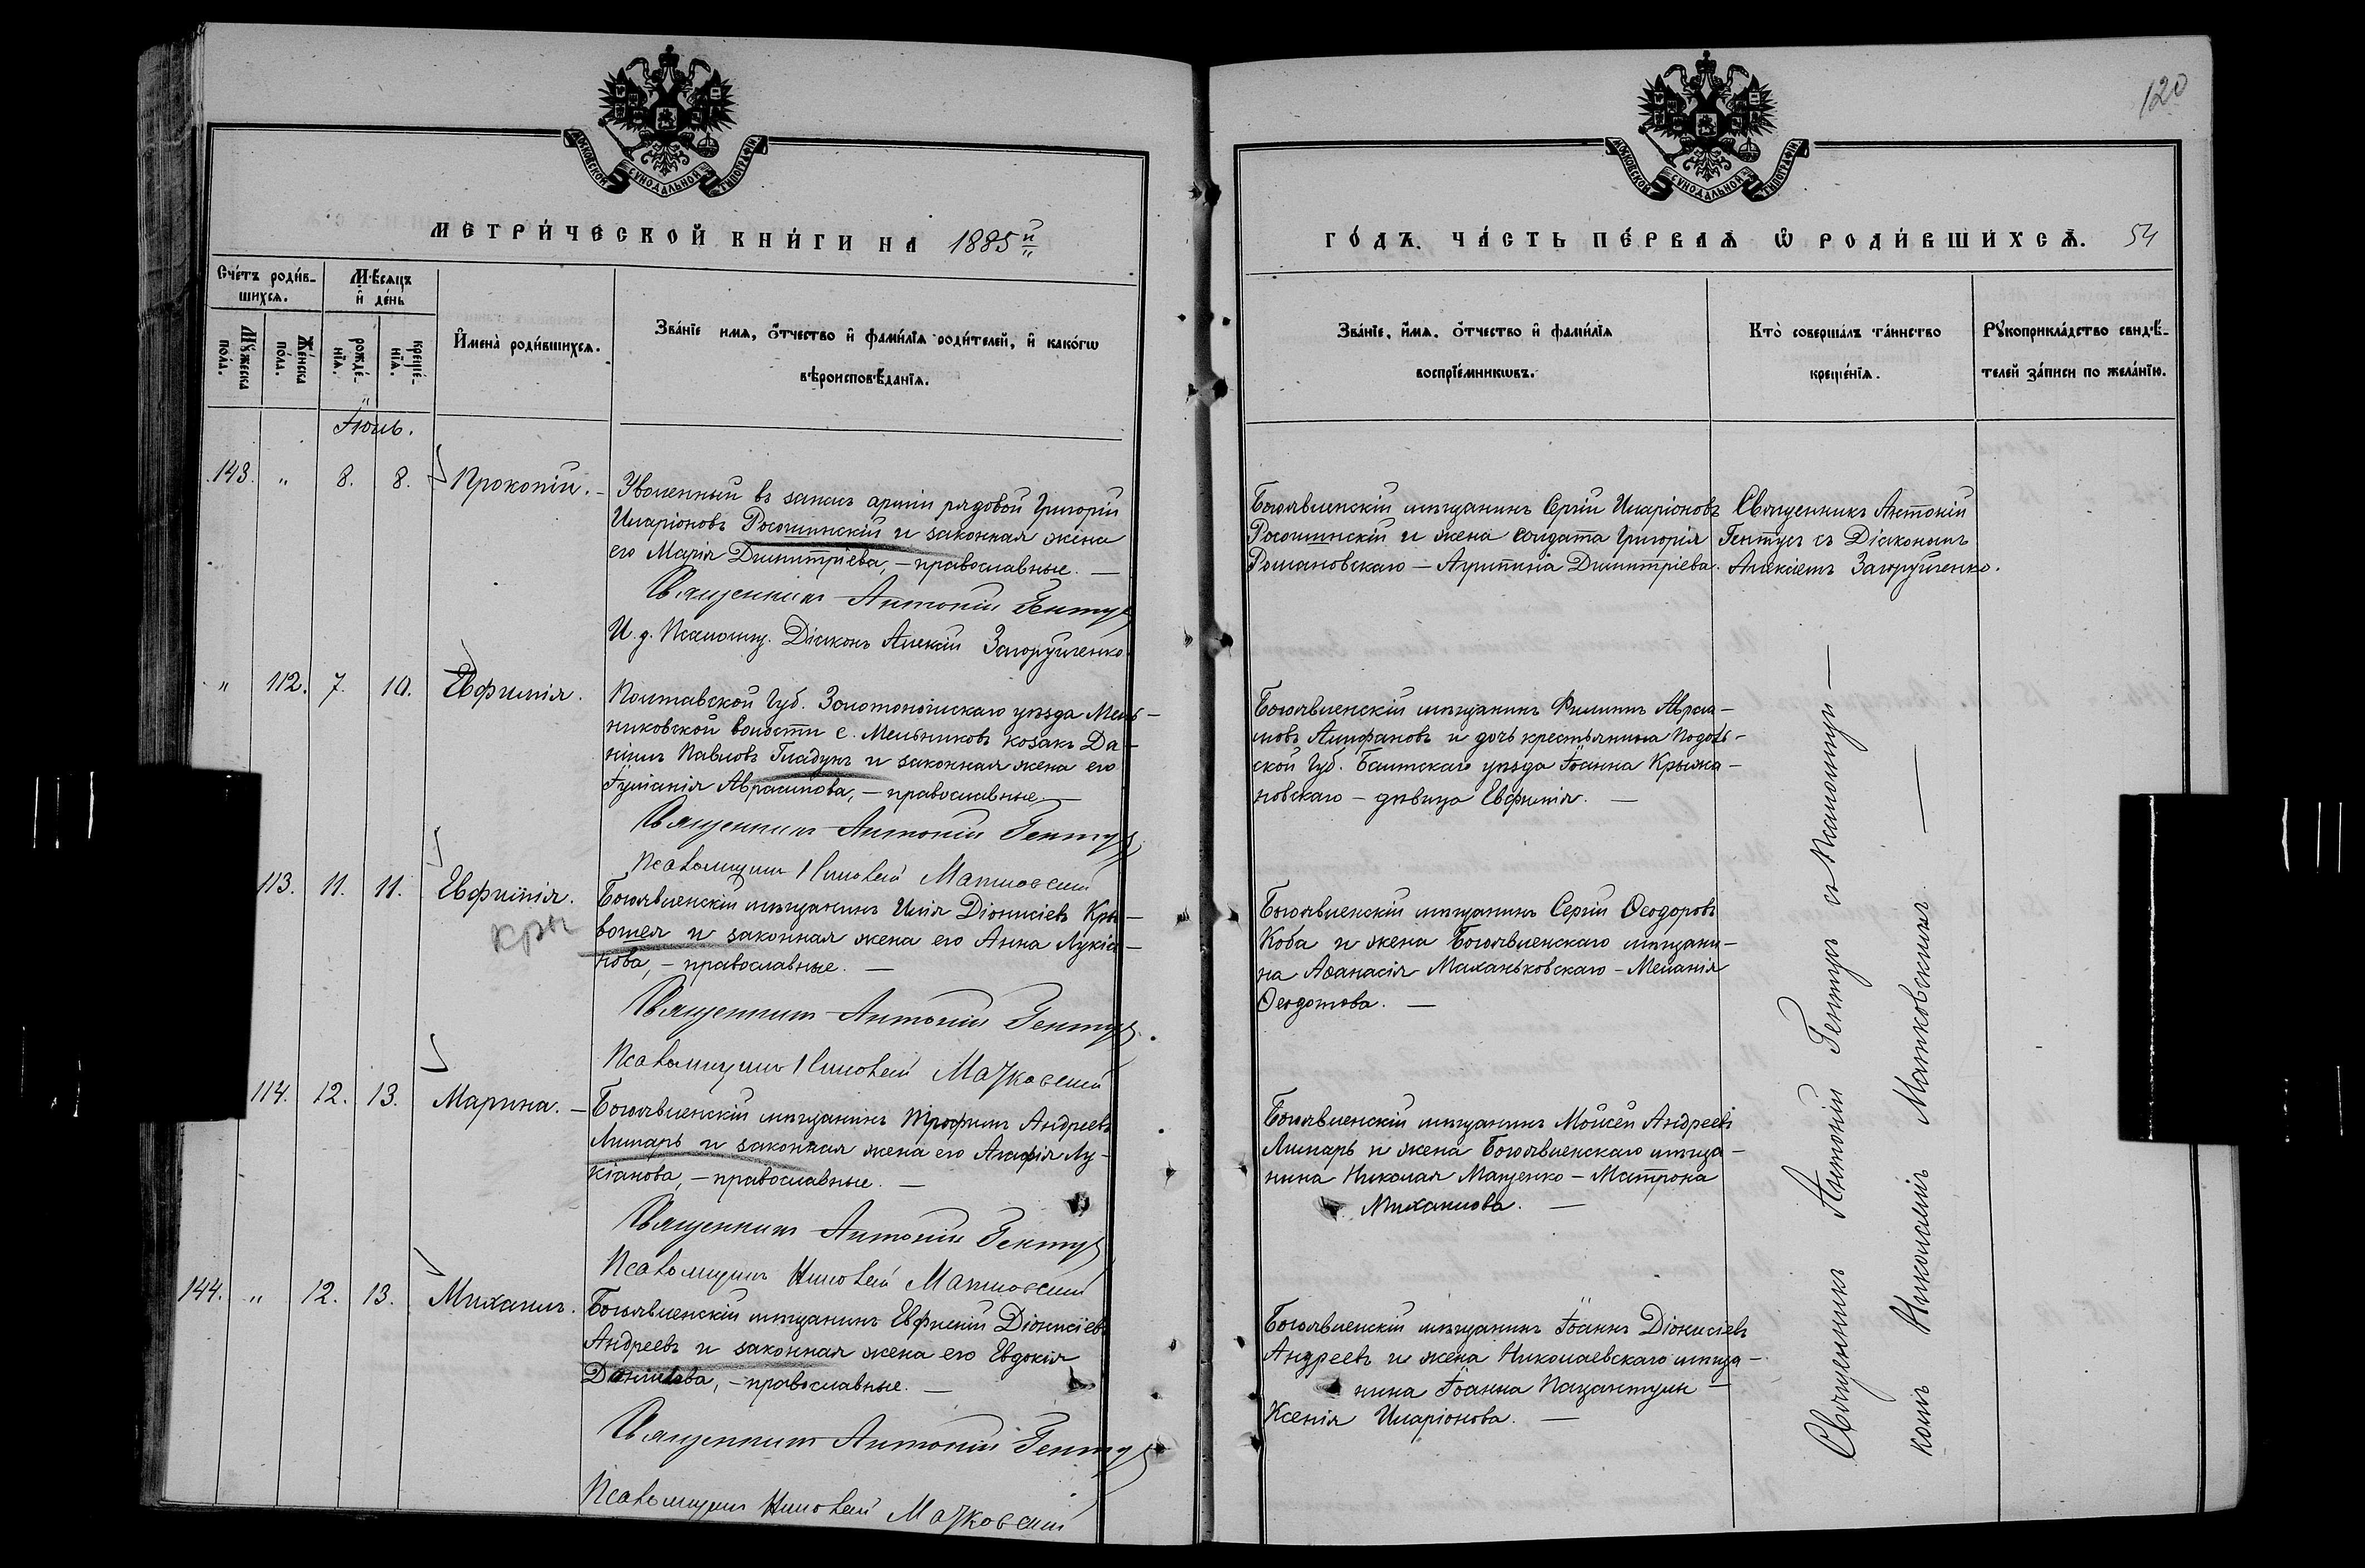 120
МОСКОВСКОЙ СѴНОДАЛЬНОЙ ТИПОГРАФІИ
МОСКОВСКОЙ СѴНОДАЛЬНОЙ ТИПОГРАФІИ
МЕТРИ́ЧЕСКОЙ КНИ́ГИ НА 1885й
ГО́ДЪ. ЧА́СТЬ ПЕ́РВАЯ Ѡ РОДИ́ВШИХСЯ. 54
Сче́тъ роди́в-
шихся.
Мѣсяцъ
и де́нь
Му́жеска
по́ла.
Же́нска
по́ла.
рожде́-
нїя.
креще́-
нїя.
Имена̀ роди́вшихся.
Зва́нїе имя, о́тчество и фами́лїя роди́телей, и како́гѡ
вѣроисповѣ́данїя.
Зва́нїе, имя, о́тчество и фами́лїя
воспрїе́мникѡвъ.
Кто̀ соверша́лъ та́инство
креще́нїя.
Рꙋкоприкла́дство свидѣ́-
телей за́писи по жела́нїю.
Іюль.
143. " 8. 8. Прокопій. -
Уволенный въ запасъ арміи рядовой Григорій
Иларіоновъ Росошинскій и законная жена
его Марія Димитріева, - православные. —
Священникъ Антоній Гентуръ
И. д. Псаломщ. Діаконъ Алексій Загорульченко
Богоявленскій мѣщанинъ Сергій Иларіоновъ
Росошинскій и жена солдата Григорія
Романовскаго — Агрипина Димитріева.
Священникъ Антоній
Гентуръ съ Діакономъ
Алексіемъ Загорульченко.
" 112. 7. 10. Евфимія.
Полтавской Губ. Золотоношскаго уѣзда Мель-
никовской волости с. Мельниковъ козакъ Да-
ніилъ Павловъ Гладунъ и законная жена его
Іуліанія Авраамова, - православные. —
Священникъ Антоній Гентуръ
Псаломщикъ Николай Матковскій
Богоявленскій мѣщанинъ Филиппъ Авраа-
мовъ и дочь крестьянина Подоль-
ской Губ. Балтскаго уѣзда Іоанна Крыжа-
новскаго - дѣвица Евфимія. —
113. 11. 11. Евфимія.
кри
Богоявленскій мѣщанинъ Илія Діонисіевъ Кри-
вошея и законная жена его Анна Лукіа-
нова, - православные. —
Священникъ Антоній Гентуръ.
Псаломщикъ Николай Матковскій
Богоявленскій мѣщанинъ Сергій Ѳеодоровъ
Коба и жена Богоявленскаго мѣщани-
на Аѳанасія Маханьковскаго - Меланія
Ѳеодотова. —
114. 12. 13. Марина. -
Богоявленскій мѣщанинъ Трофимъ Андреевъ
Лимарь и законная жена его Агафія Лу-
кіанова, - православные. —
Священникъ Антоній Гентуръ
Псаломщикъ Николай Матковскій
Богоявленскій мѣщанинъ Моисей Андреевъ
Лимарь и жена Богоявленскаго мѣща-
нина Николая Мащенко - Матрона
Михаилова. —
144. " 12. 13. Михаилъ.
Богоявленскій мѣщанинъ Евфимій Діонисіевъ
Андреевъ и законная жена его Евдокія
Даніилова, - православные. —
Священникъ Антоній Гентуръ
Псаломщикъ Николай Матковскій
Богоявленскій мѣщанинъ Іоаннъ Діонисіевъ
Андреевъ и жена Николаевскаго мѣща-
нина Іоанна —
Ксенія Иларіонова. —
Священникъ Антоній Гентуръ съ Псаломщи-
комъ Николаемъ Матковскимъ. —